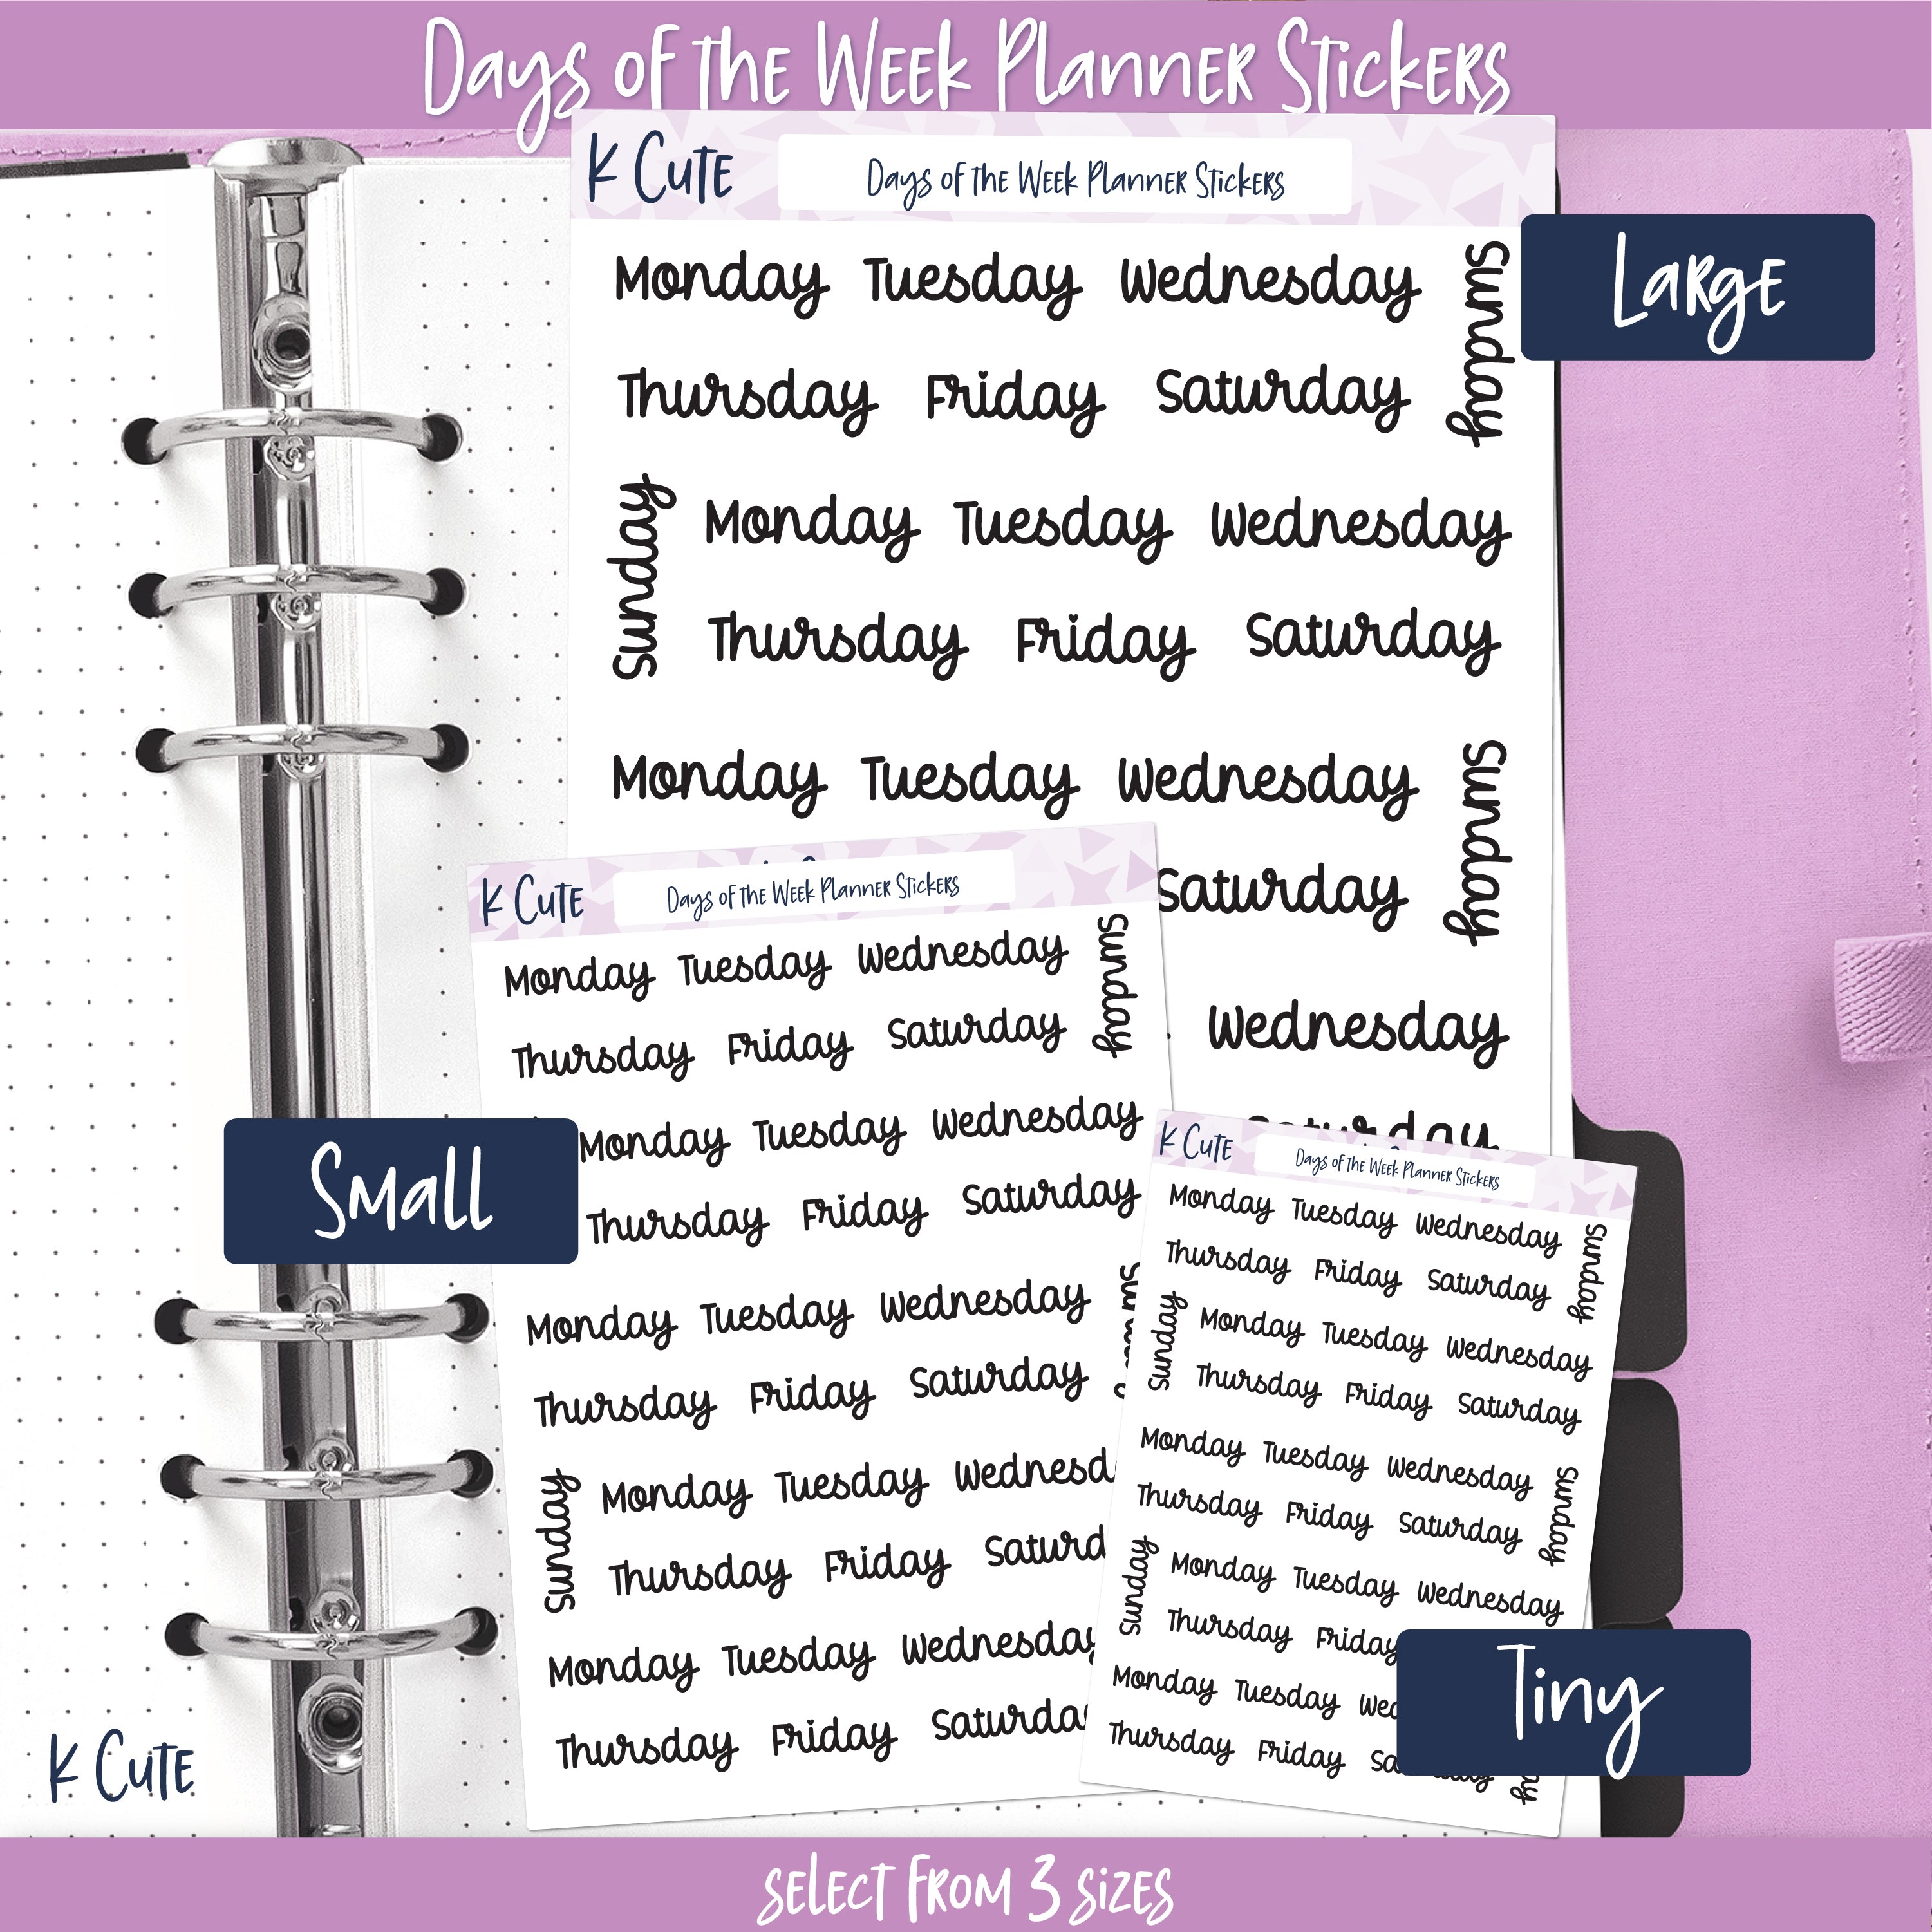 Days of the Week Planner Stickers
K Cute
Days of the Week Planner Stickers
Large
Monday Tuesday Wednesday
Sunday
Thursday Friday Saturday
Sunday
Monday Tuesday Wednesday
Thursday Friday Saturday
Monday Tuesday Wednesday
Sunday
Saturday
Wednesday
Saturday
K Cute
Days of the Week Planner Stickers
Monday Tuesday Wednesday
Sunday
Thursday Friday Saturday
Monday Tuesday Wednesday
Thursday Friday Saturday
Monday Tuesday Wednesday
Thursday Friday Saturday
Sunday
Monday Tuesday Wednesd
Thursday Friday Saturd
Monday Tuesday Wednesday
Thursday Friday Saturda
Small
K Cute
Days of the Week Planner Stickers
Monday Tuesday Wednesday
Sunday
Thursday Friday Saturday
Sunday
Monday Tuesday Wednesday
Thursday Friday Saturday
Monday Tuesday Wednesday
Sunday
Thursday Friday Saturday
Sunday
Monday Tuesday Wednesday
Thursday Friday
Monday Tuesday Wed
Thursday Friday Sa
Tiny
K Cute
Select from 3 sizes